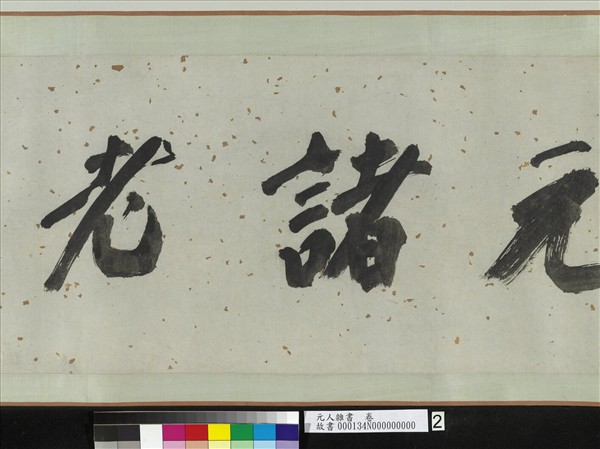 元諸老
元人雜書 卷
故書000134N000000000
2